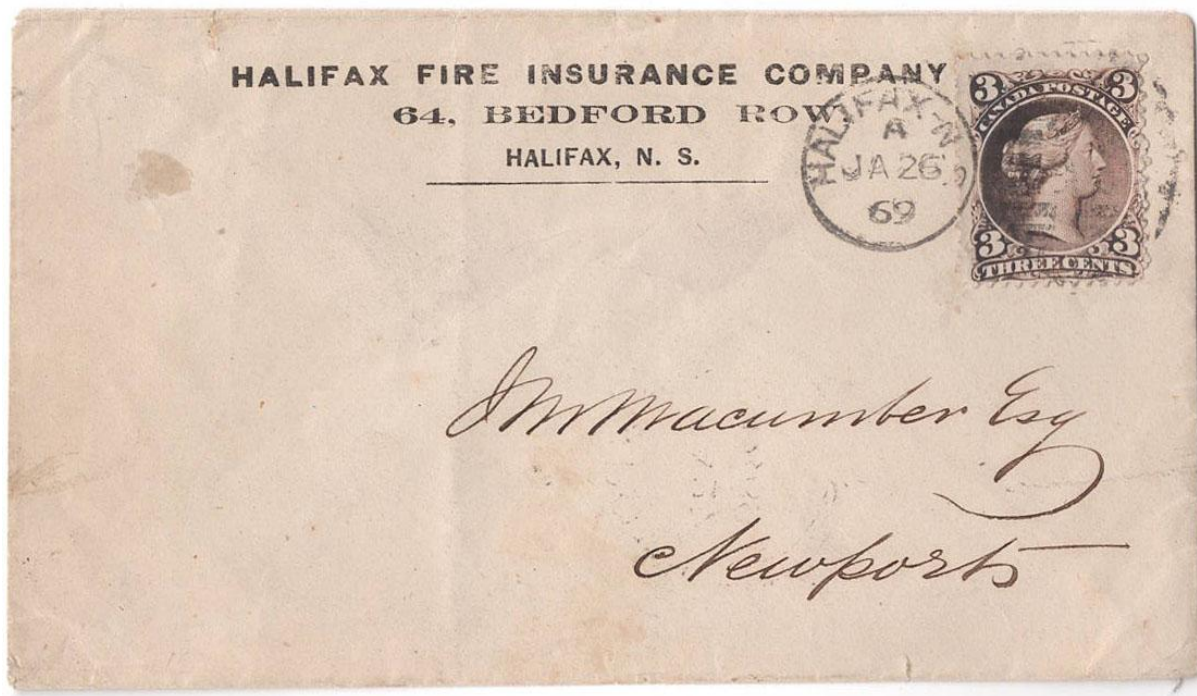 HALIFAX FIRE INSURANCE COMPANY
64, BEDFORD ROW,
HALIFAX, N. S.
HALIFAX·N.
A
JA 26
69
3 3
CANADA POSTAGE
3 3
THREE CENTS
J M Macumber Esq
Newport